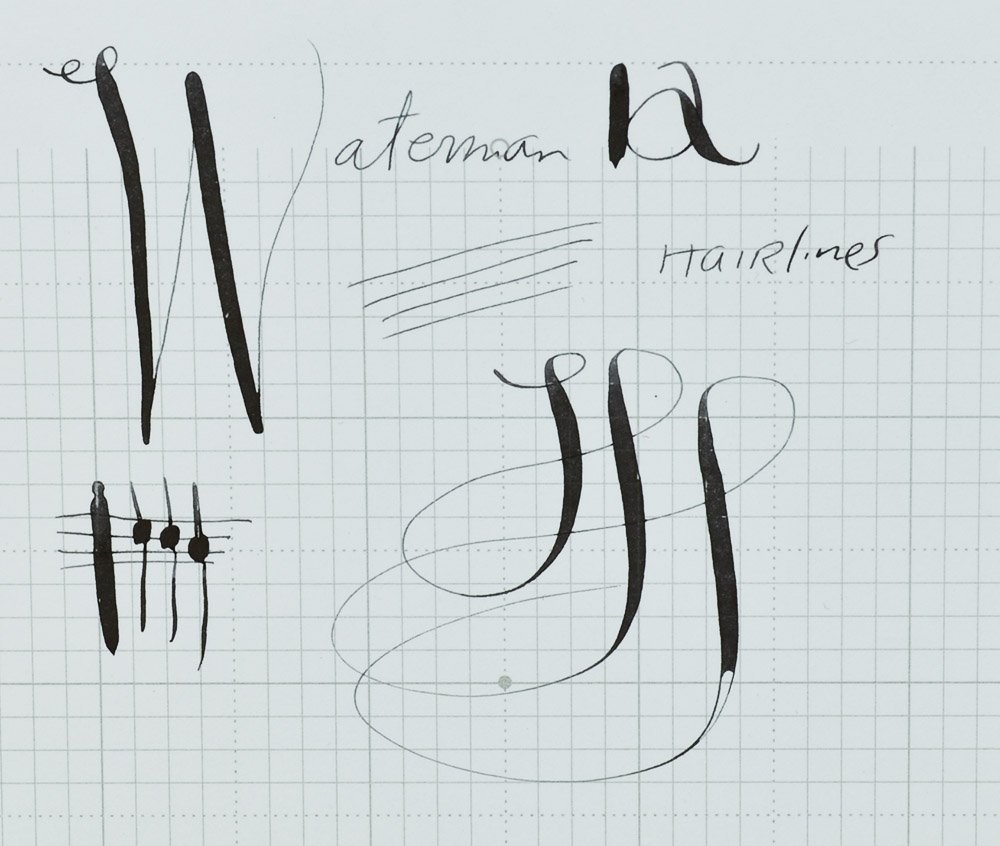 Waterman
HAIRlines